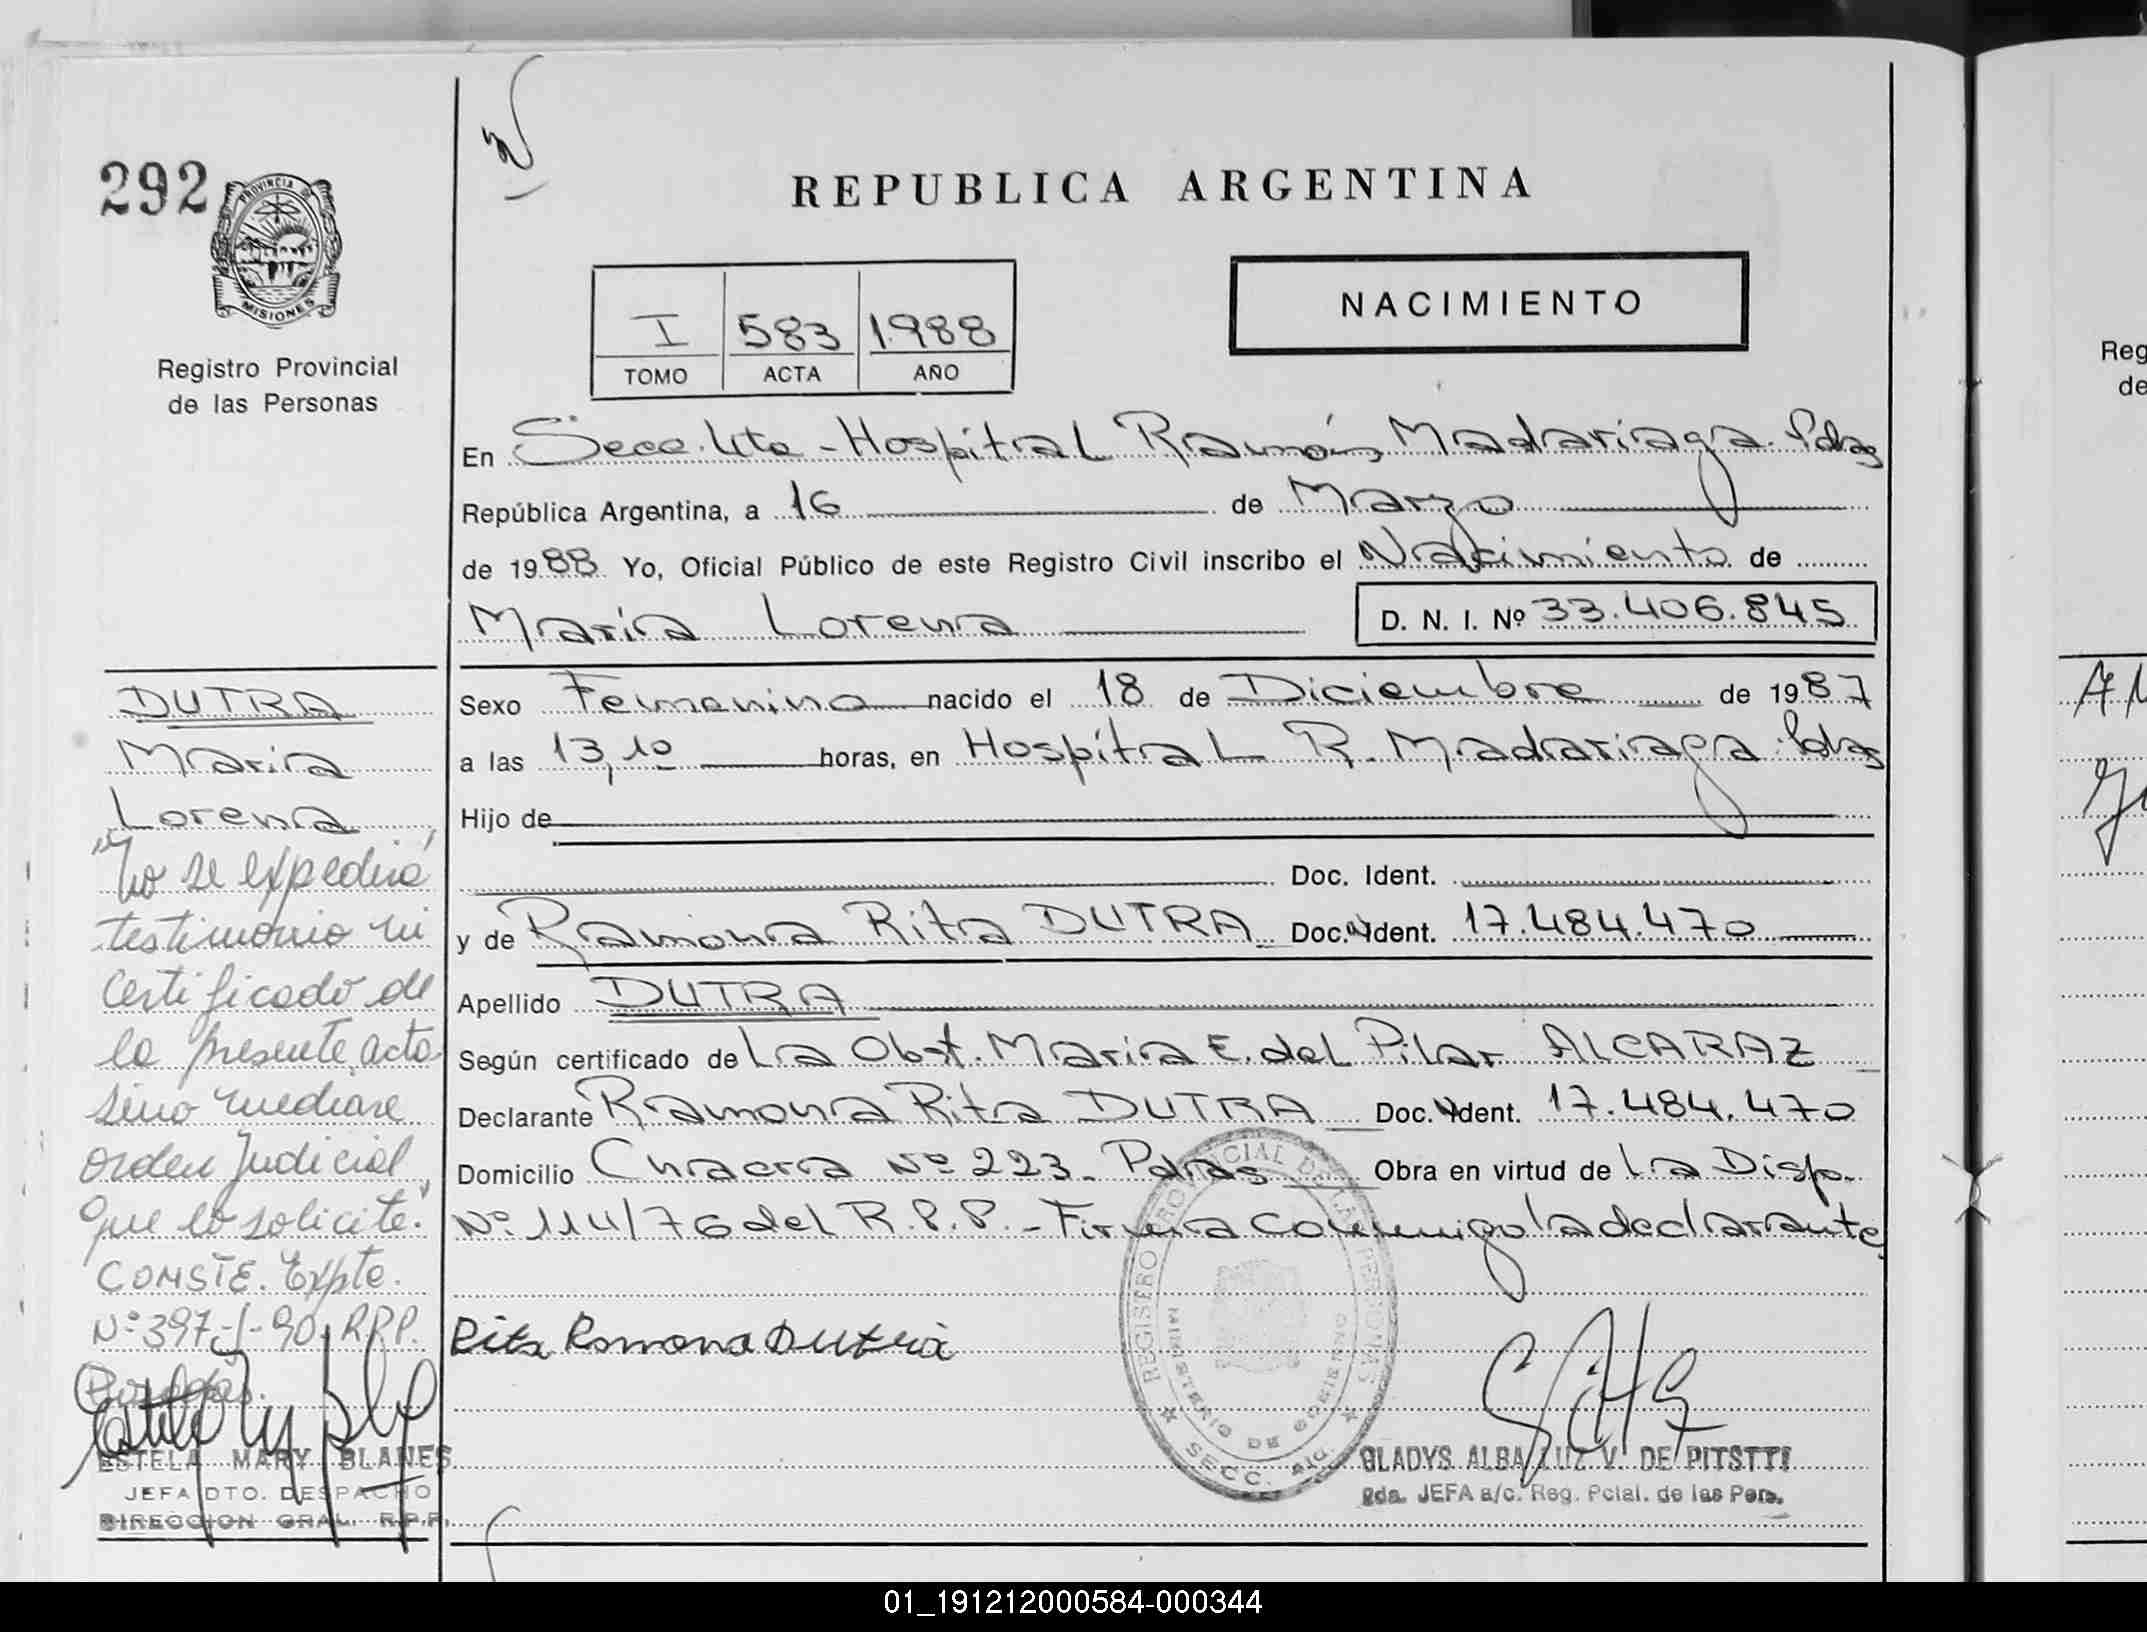 292
PROVINCIA
MISIONES
Registro Provincial
de las Personas
REPUBLICA ARGENTINA
I 583 1988
TOMO ACTA AÑO
NACIMIENTO
En Secc. 4ta - Hospital Ramón Madariaga. Pdas
República Argentina, a 16 de Marzo
de 1988 Yo, Oficial Público de este Registro Civil inscribo el Nacimiento de
María Lorena D. N. I. Nº 33.406.845
Sexo Femenino nacido el 18 de Diciembre de 1987
a las 13,10 horas, en Hospital R. Madariaga Pdas
Hijo de
Doc. Ident.
y de Ramona Rita DUTRA Doc. Ident. 17.484.470
Apellido DUTRA
Según certificado de La Obst. María E. del Pilar ALCARAZ
Declarante Ramona Rita DUTRA Doc. Ident. 17.484.470
Domicilio Chacra Nº 223 - Pdas Obra en virtud de La Disp.
Nº 114/76 del R.P.P. - Firma conmigo la declarante
Rita Ramona Dutra
REGISTRO PROVINCIAL DE LAS PERSONAS
MINISTERIO DE GOBIERNO
SECC. 4ta.
GLADYS ALBA LUZ V. DE PITSTTI
JEFA a/c. Reg. Pcial. de las Pers.
DUTRA
María
Lorena
"No se expedirá
testimonio ni
certificado de
la presente acta
sino mediare
orden Judicial
que lo solicite."
CONSTE. Expte.
Nº 397-J-90. RPP.
Posadas.
ESTELA MARY BLANES
JEFA DTO. DESPACHO
DIRECCION GRAL. R.P.P.
Reg
de
01_191212000584-000344